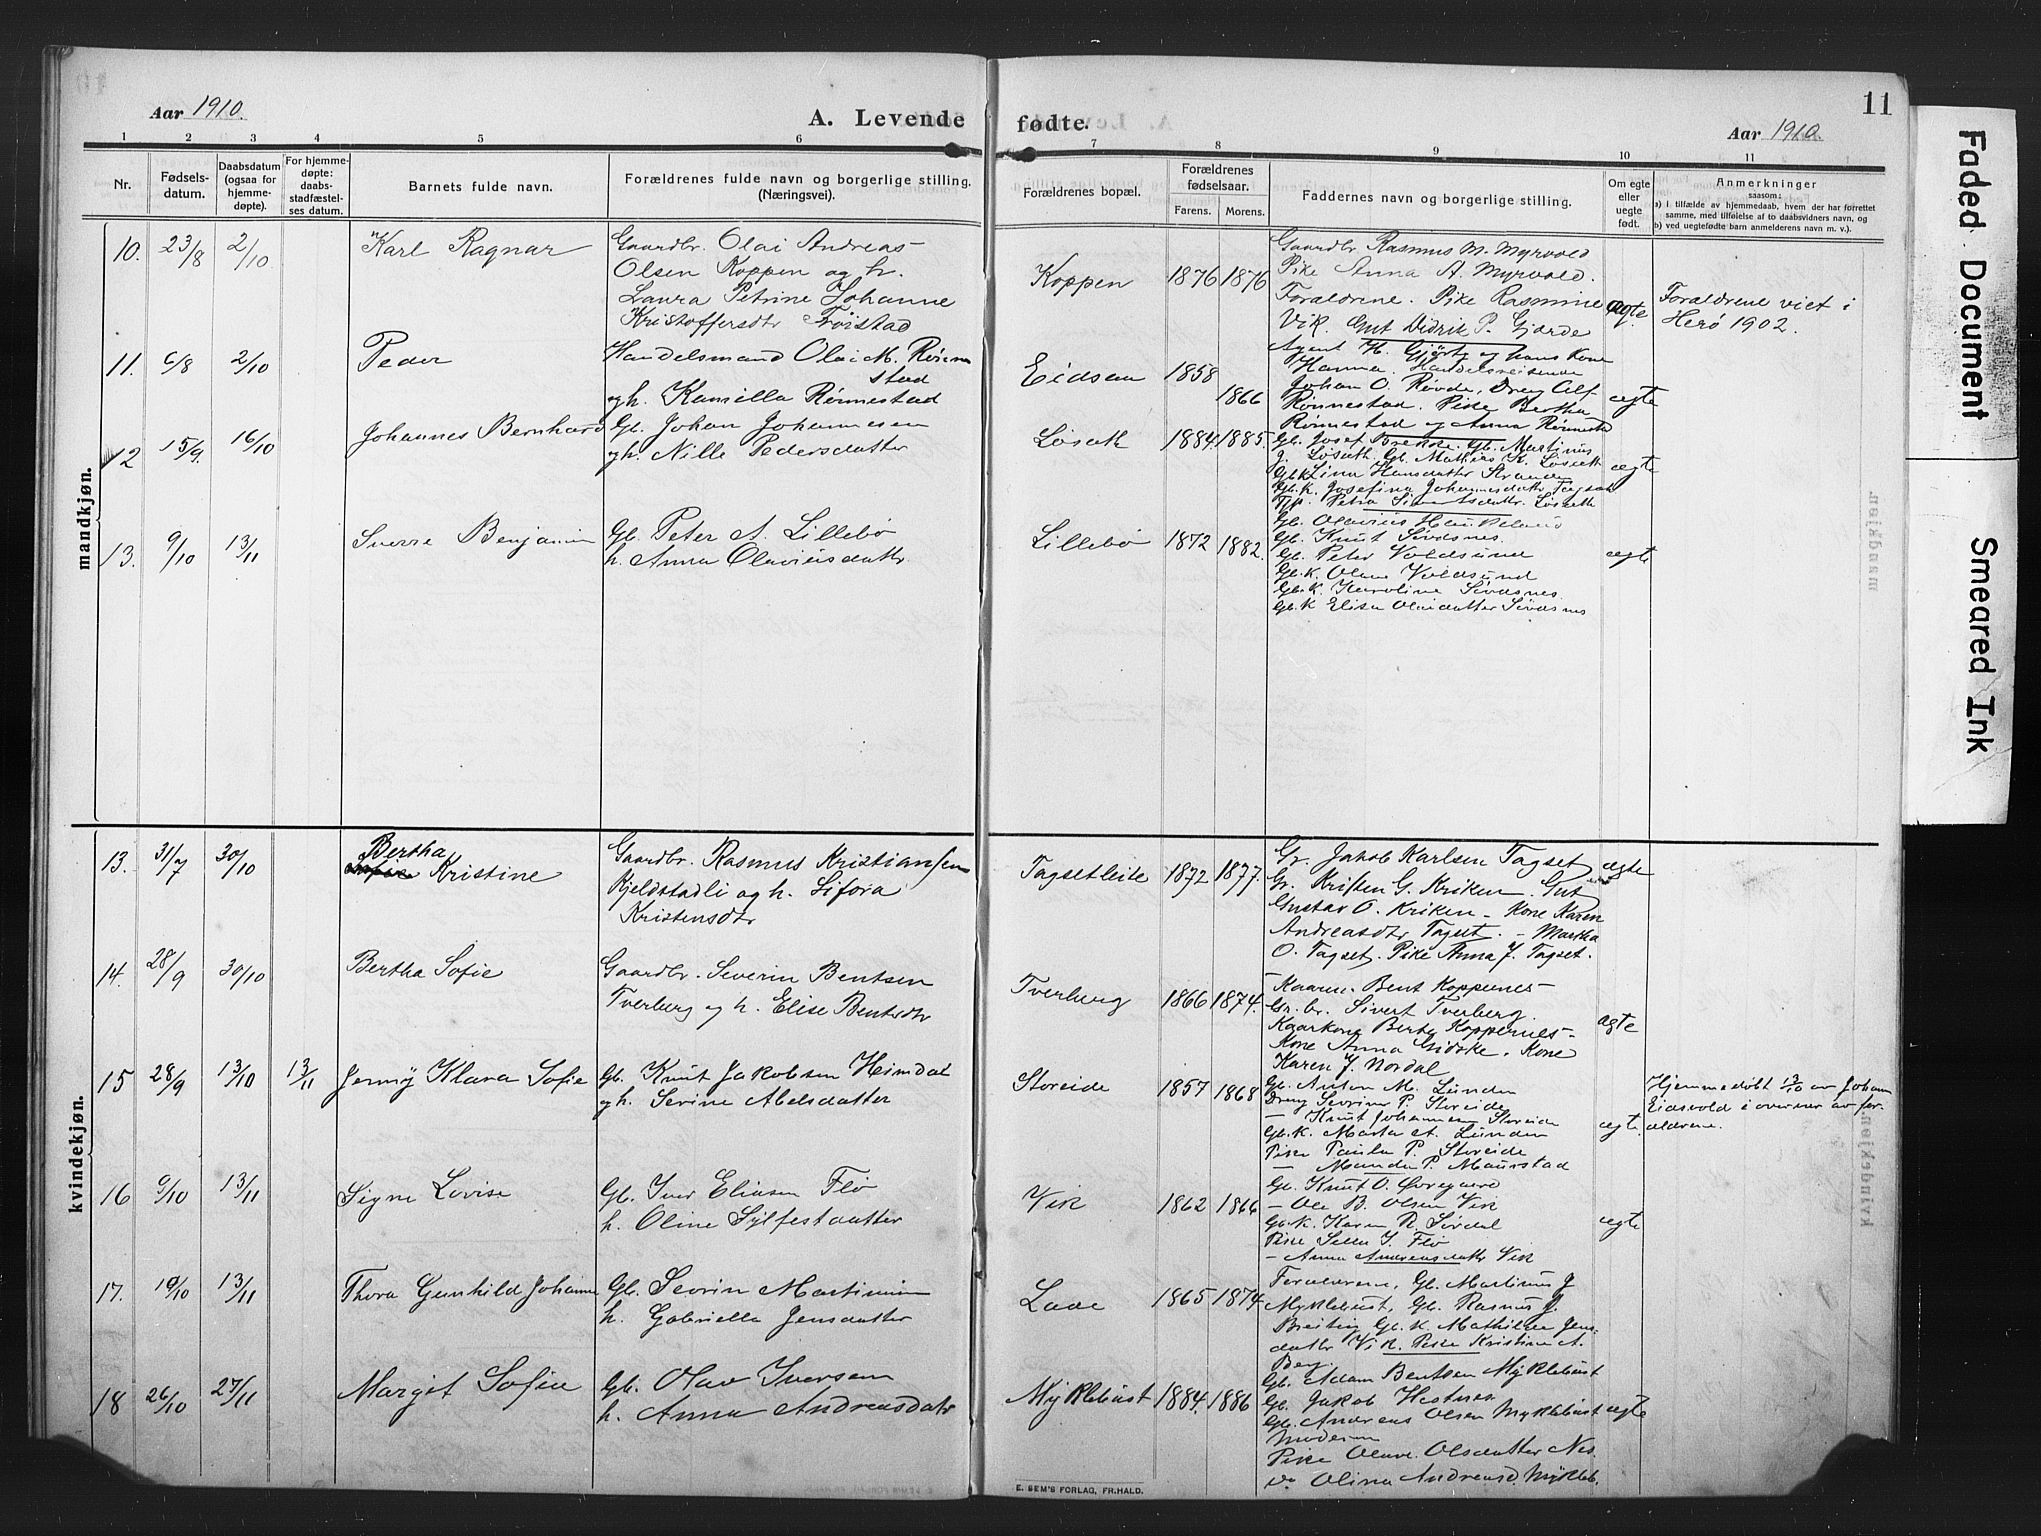 11
Aar 1910.
A. Levende
fødte.
Aar 1910.
1 2 3 4 5 6 7 8 9 10 11
Nr.
Fødsels-
datum.
Daabsdatum
(ogsaa for
hjemme-
døpte).
For hjemme-
døpte:
daabs-
stadfæstel-
ses datum.
Barnets fulde navn.
Forældrenes fulde navn og borgerlige stilling.
(Næringsvei).
Forældrenes bopæl.
Forældrenes
fødselsaar.
Farens. Morens.
Faddernes navn og borgerlige stilling.
Om egte
eller
uegte
født.
Anmerkninger
saasom:
a) i tilfælde av hjemmedaab, hvem der har forrettet
samme, med tilføielse af to daabsvidners navn, og
b) ved uegtefødte barn anmelderens navn m. v.).
mandkjøn.
10. 23/8 2/10 Karl Ragnar
Gaardbr. Olai Andreas-
Olsen Koppen og h.
Laura Petrine Johanne
Kristoffersdtr Frøistad
Koppen 1876 1876
Gaardbr Rasmus M. Myrvold
Pike Anna A. Myrvold.
Forældrene. Pike Rasmine
Vik. Gut Didrik P. Gjerde
ægte.
Forældrene viet i
Herø 1902.
11. 6/8 2/10 Peder
Handelsmand Olai M. Rønne
stad
og h. Kamilla Rønnestad
Eidsaa 1858 1866
Agent H. Gjørtz og hans kone
Hanna. Handelsreisende
Johan O. Røvde, Dreng Alf
Rønnestad. Pike Bertha
Rønnestad og Anna Rønnestad
ægte
12 15/9. 16/10 Johannes Bernhard
Gb. Johan Johannesen
og h. Nille Pedersdatter
Løseth 1884. 1885.
Gb. Josef Brekke. Gb. Martinus
J. Løseth. Gb. Mathias K. Løseth
Gbk. Lina Hansdatter Strande
Gb. K. Josefina Johannesdatter
Petra Simonsdatter Løseth
ægte
13. 9/10 13/11 Sverre Benjamin
Gb. Peter A. Lillebø
h. Anna Olaviusdatter
Lillebø 1872 1882.
Gb. Olavius Haukeland
Gb. Knut Sivdsnes.
Gb. Peter Voldsund
Gb. K. Olave Voldsund
Gb. K. Karoline Sivdsnes.
Gb. K Elisa Olaidatter Sivdsnes
ægte
kvindekjøn.
13. 31/7 30/10 Bertha
Kristine
Gaardbr. Rasmus Kristiansen
Kjeldstadli og h. Sifora
Kristensdtr
Tagsetleite 1872 1877.
Gr. Jakob Karlsen Tagset
Gr. Kristen G. Kriken. Gut
Gustav O. Kriken - Kone Karen
Andreasdtr Tagset. - Martha
O. Tagset. Pike Anna J. Tagset.
ægte
14. 28/9 30/10 Bertha Sofie
Gaardbr. Severin Bentsen
Tverberg og h. Elise Bentsdtr
Tverberg 1866 1874.
- Kaarm. Bent Koppernes-
Gr. br. Sivert Tverberg.
Kaarkone Berte Koppernes-
Kone Anna Gidske. Kone
Karen J. Nordal
ægte
15 28/9 13/10 13/11 Jenny Klara Sofie
Gb. Knut Jakobsen Heimdal
og h. Serine Abelsdatter
Storeide 1857 1868
Gb. Anton M. Lunden
Dreng Severin P. Storeide
- Knut Johannesen Storeide
Gb. K. Marta A. Lunden
Pike Paula P. Storeide
- Manda P. Maurstad
ægte.
Hjemmedøbt 13/10 av Johan
Eidsvold i overvær av for-
ældrene.
16 9/10 13/11 Signe Lovise
Gb. Iver Eliasen Flø
h. Oline Sylfestdatter
Vik 1862 1866
Gb. Knut O. Øvregaard
- Ole B. Olsen Vik
Gb. K. Karen R. Sørdal
Pike Sella I. Flø
- Anna Andreasdatter Vik
ægte
17. 19/10 13/11 Thora Gunhild Johanne
Gb. Severin Martinius
h. Gabriella Jensdatter
Laae 1865 1874
Forældrene, Gb. Martinus J
Myklebust, Gb. Rasmus J.
Breiteig Gb. K. Mathilde Jens-
datter Vik. Pike Kristine A.
Berg
18 26/10 27/11 Margit Sofie
Gb. Olav Iversen
h. Anna Andreasdatr
Myklebust 1884. 1886
Gb. Adam Bentsen Myklebust
Gb. Jakob Hestnes
Gb. Andreas Olsen Myklebust
Moderen
Pike Olave Olsdatter Nes.
Do Olina Andreasd. Mykleb.
ægte
E. SEM'S FORLAG, FR.HALD.
Faded Document
Smeared Ink